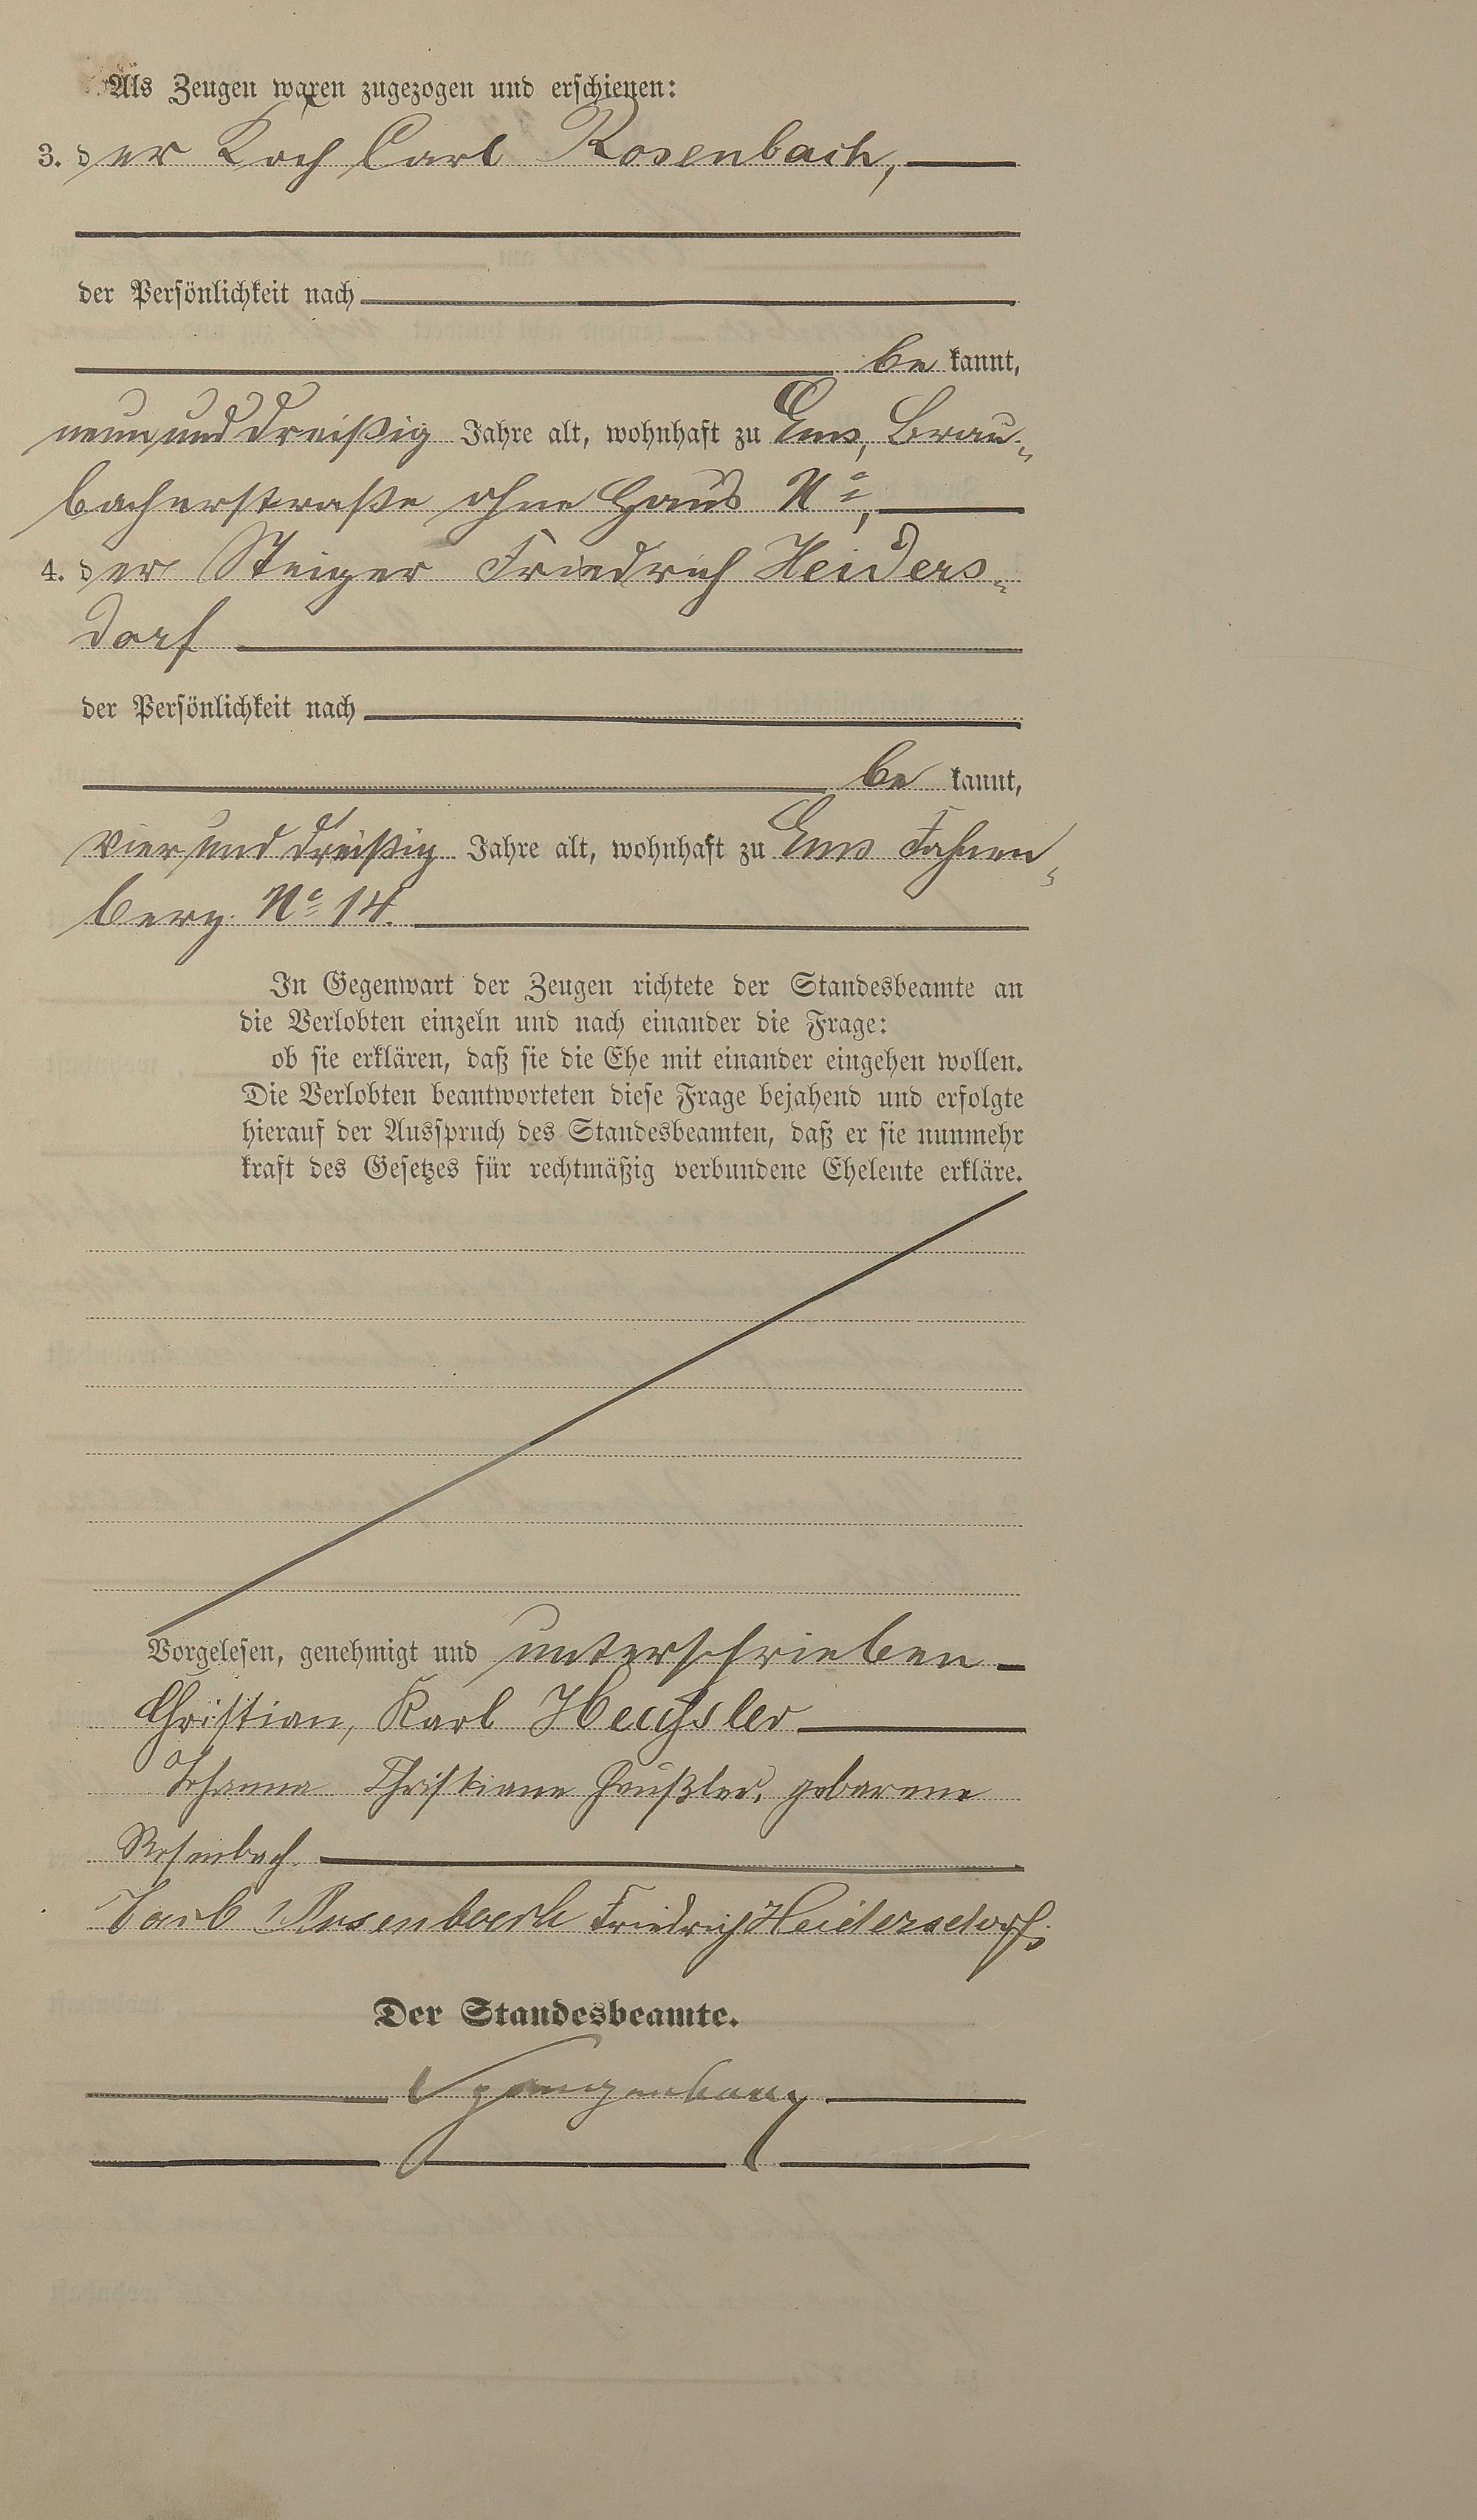 Als Zeugen waren zugezogen und erschienen:
3. der Koch Carl Rosenbach,
der Persönlichkeit nach
be kannt,
neun und dreißig Jahre alt, wohnhaft zu Ems, Brau-
bacherstraße ohne Haus No,
4. der Steiger Friedrich Heiders-
dorf
der Persönlichkeit nach
be kannt,
vier und dreißig Jahre alt, wohnhaft zu Ems Fahnen-
berg No 14.
In Gegenwart der Zeugen richtete der Standesbeamte an
die Verlobten einzeln und nach einander die Frage:
ob sie erklären, daß sie die Ehe mit einander eingehen wollen.
Die Verlobten beantworteten diese Frage bejahend und erfolgte
hierauf der Ausspruch des Standesbeamten, daß er sie nunmehr
kraft des Gesetzes für rechtmäßig verbundene Eheleute erkläre.
Vorgelesen, genehmigt und unterschrieben
Christian, Karl Heußler
Johanna Christiane Heußler, geborene
Rosenbach.
Carl Rosenbach Friedrich Heidersdorf.
Der Standesbeamte.